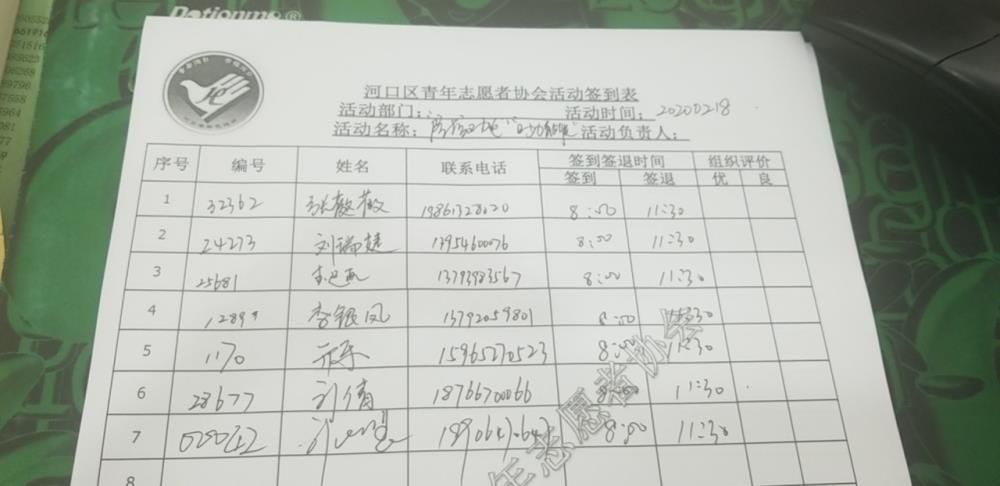 河口区青年志愿者协会活动签到表
活动部门: 活动时间: 20200218
活动名称: 活动负责人:
序号 编号 姓名 联系电话 签到签退时间 组织评价
签到 签退 优 良
1 32362 张薇薇 8:00 11:30
2 24273 刘瑞婕 13954600076 8:00 11:30
3 25681 13793983567 8:00 11:30
4 李银凤 13792059801 8:00 11:30
5 1170 15965270523 8:00 11:30
6 28677 刘倩 18766700066 8:00 11:30
7 8:00 11:30
8
年志愿者协会